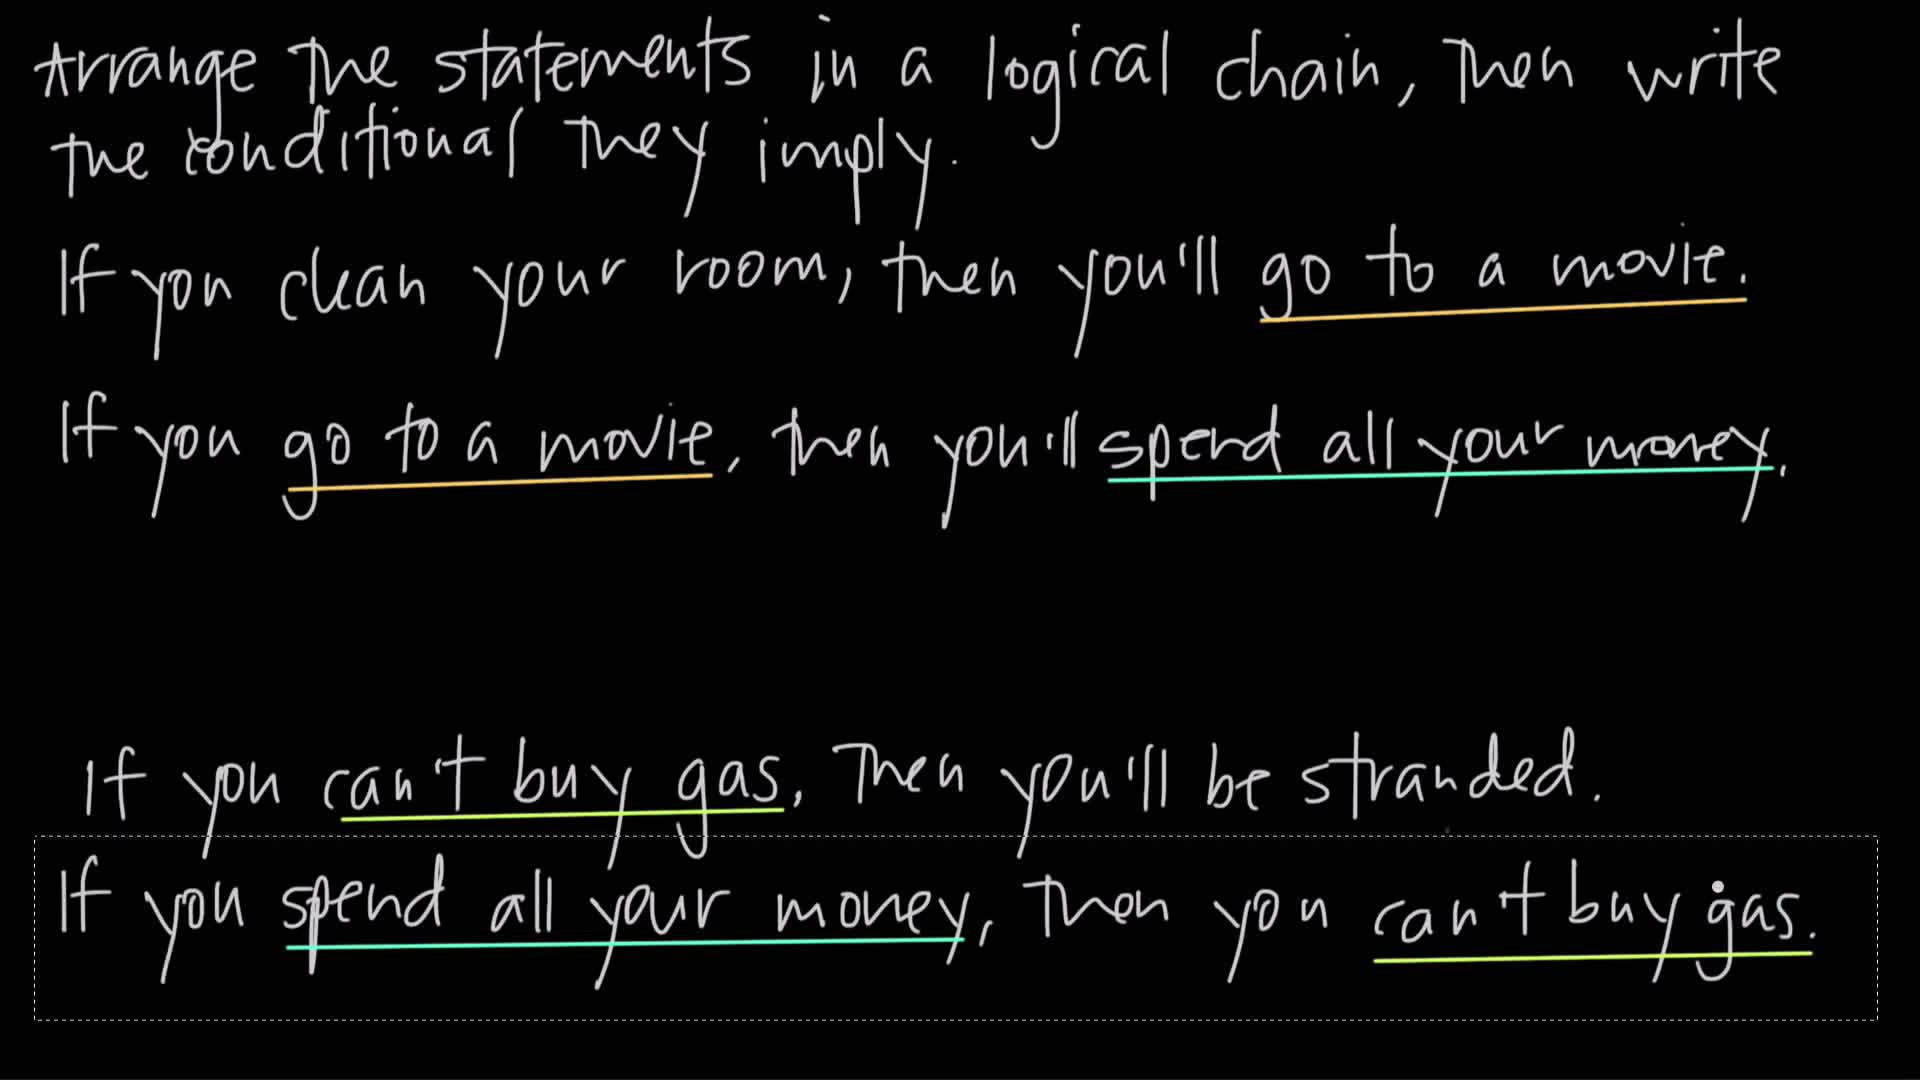 Arrange the statements in a logical chain, then write
the conditional they imply.
If you clean your room, then you'll go to a movie.
If you go to a movie, then you'll spend all your money.
If you can't buy gas, then you'll be stranded.
If you spend all your money, then you can't buy gas.